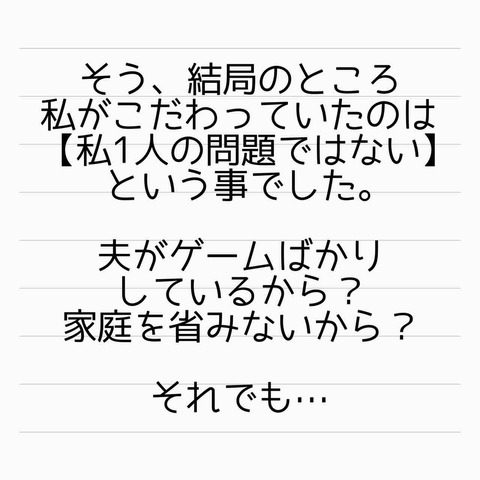 そう、結局のところ
私がこだわっていたのは
【私1人の問題ではない】
という事でした。
夫がゲームばかり
しているから？
家庭を省みないから？
それでも…